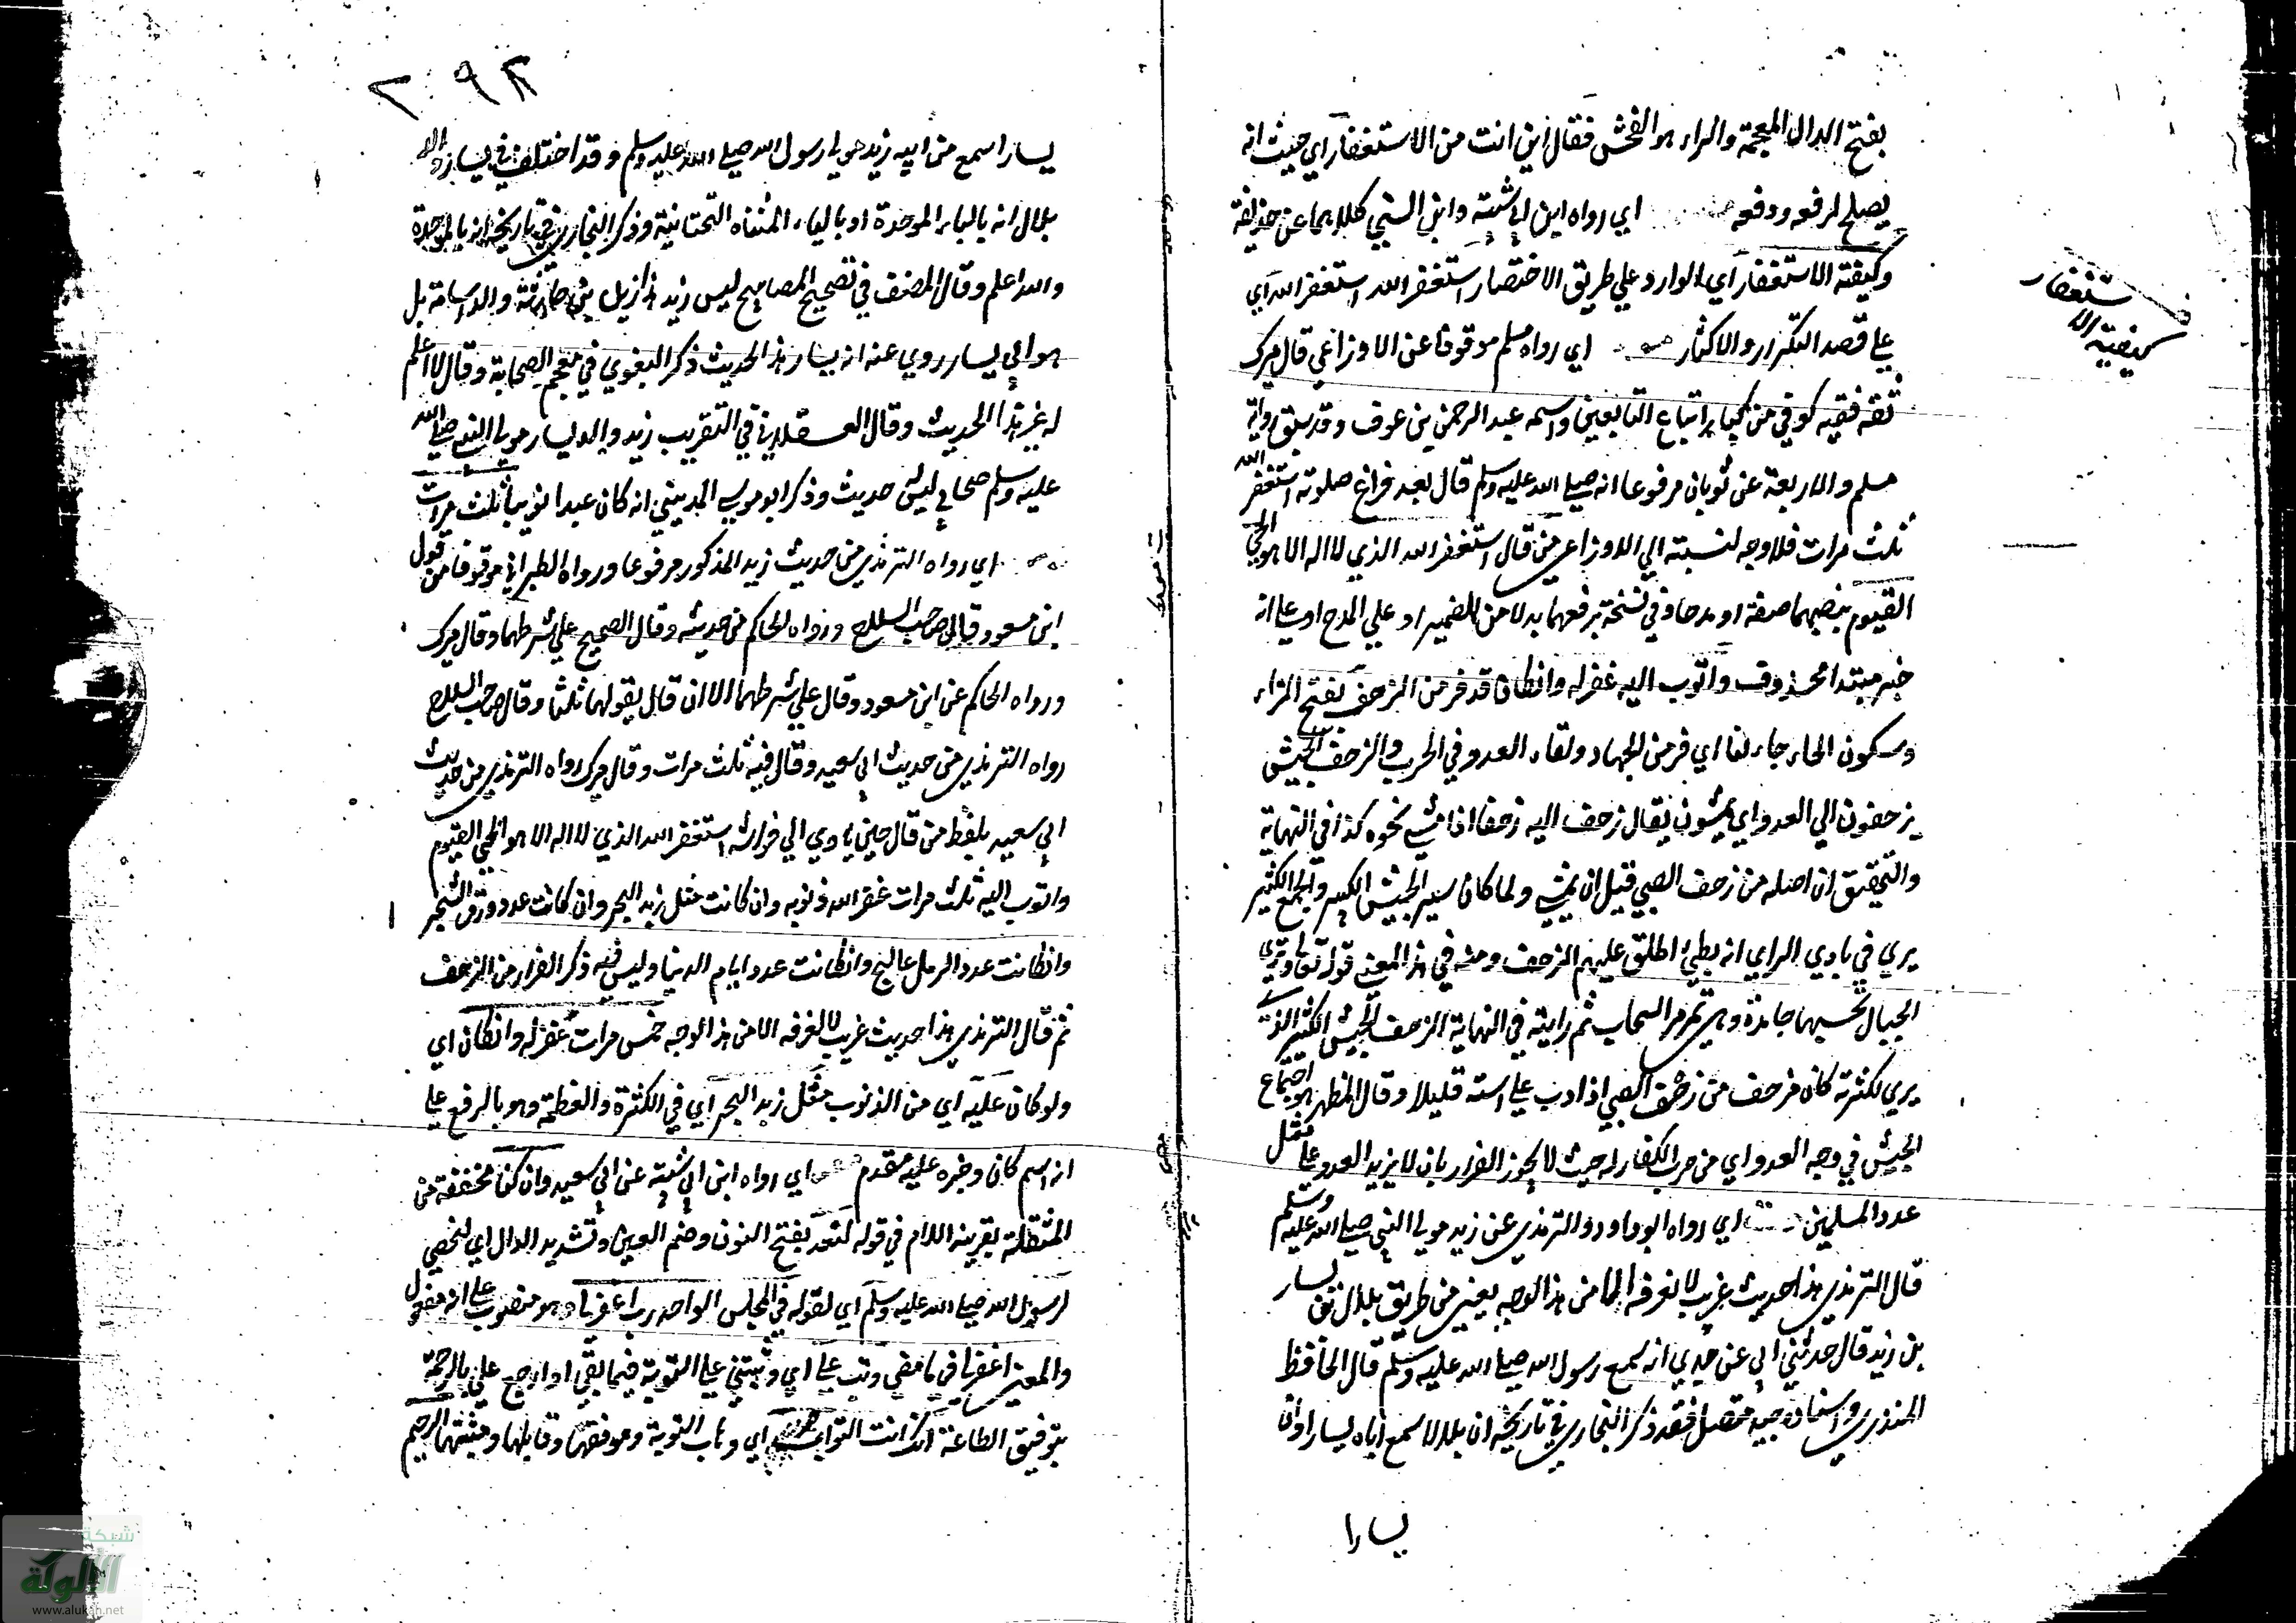 بفتح الدال المعجمة والراء هو الفحش فقال اين انت من الاستغفار اي حيث انه
يصلح لرفعه ودفعه اي رواه ابن ابي شيبة وابن السني كلاهما عن حذيفة
وكيفية الاستغفار اي الوارد علي طريق الاختصار استغفر الله استغفر الله اي
علي قصد التكرار والاكثار اي رواه مسلم موقوفا عن الاوزاعي قال ميرك
ثقة فقيه كوفي من كبار اتباع التابعين واسمه عبد الرحمن بن عوف وقد سبق رواية
مسلم والاربعة عن ثوبان مرفوعا انه صلي الله عليه وسلم قال بعد فراغ صلوته استغفر الله
ثلث مرات فلا وجه لنسبته الي الاوزاعي من قال استغفر الله الذي لا اله الا هو الحي
القيوم بنصبهما صفة او مدحا وفي نسخة برفعهما بدلا من الضمير او علي المدح او علي انه
خبر مبتدا محذوف واتوب اليه غفر له وان كان قد فر من الزحف بفتح الزاء
وسكون الحاء جاء لغا اي فر من الجهاد ولقاء العدو في الحرب والزحف الجيش
يزحفون الي العدو اي يمشون يقال زحف اليه زحفا اذا مشي نحوه كذا في النهاية
والتحقيق ان اصله من زحف الصبي قبل ان يمشي ولما كان سير الجيش الكبير والجمع الكثير
يري في بادي الراي انه بطئ اطلق عليهم الزحف ومنه في هذا المعني قوله تعا وتري
الجبال تحسبها جامدة وهي تمر مر السحاب ثم رايته في النهاية الزحف الجيش الكثير الذي
يري لكثرته كانه يزحف من زحف الصبي اذا دب علي استه قليلا وقال المظهر هو اجتماع
الجيش في وجه العدو اي من حرب الكفار له حيث لا يجوز الفرار بان لا يزيد العدو علي مثل
عدد المسلمين اي رواه ابو داود والترمذي عن زيد مولي النبي صلي الله عليه وسلم
قال الترمذي هذا حديث غريب لا نعرفه الا من هذا الوجه يعني من طريق بلال بن يسار
بن زيد قال حدثني ابي عن جدي انه سمع رسول الله صلي الله عليه وسلم قال الحافظ
المنذري واسناده جيد متصل فقد ذكر البخاري في تاريخه ان بلالا سمع اباه يسارا وان
يسارا
كيفية الاستغفار
٢٩٢
يسارا سمع من ابيه زيد مولي رسول الله صلي الله عليه وسلم وقد اختلف في يسار والد
بلال انه بالباء الموحدة او بالياء المثناه التحتانية وذكر البخاري في تاريخه انه بالموحدة
والله اعلم وقال المصنف في تصحيح المصابيح ليس زيد هذا زيد بن حارثة والد اسامة بل
هو ابي يسار روي عنه ابنه يسار هذا الحديث ذكر البغوي في معجم الصحابة وقال لا اعلم
له غير هذا الحديث وقال العسقلاني في التقريب زيد والد يسار مولي النبي صلي الله
عليه وسلم صحابي له حديث وذكر ابو موسي المديني انه كان عبدا نوبيا ثلث مرات
اي رواه الترمذي من حديث زيد المذكور مرفوعا ورواه الطبراني موقوفا من قول
ابن مسعود قال صاحب السلاح ورواه الحاكم من حديثه وقال الصحيح علي شرطهما وقال ميرك
ورواه الحاكم عن ابن مسعود وقال علي شرطهما الا انه قال يقولها ثلثا وقال صاحب السلاح
رواه الترمذي من حديث ابي سعيد وقال فيه ثلث مرات وقال ميرك رواه الترمذي من حديث
ابي سعيد بلفظ من قال حين ياوي الي فراشه استغفر الله الذي لا اله الا هو الحي القيوم
واتوب اليه ثلث مرات غفر الله ذنوبه وان كانت مثل زبد البحر وان كانت عدد ورق الشجر
وان كانت عدد الرمل عالج وان كانت عدد ايام الدنيا وليس فيه ذكر الفرار من الزحف
ثم قال الترمذي هذا حديث غريب لا نعرفه الا من هذا الوجه خمس مرات غفر له وان كان اي
ولو كان عليه اي من الذنوب مثل زبد البحر اي في الكثرة والعظمة وهو بالرفع علي
انه اسم كان وخبره عليه مقدم اي رواه ابن ابي شيبة عن ابي سعيد وان كنا مخففة من
المثقلة بقرينة اللام في قوله لنعد بفتح النون وضم العين وتشديد الدال اي لنحصي
لرسول الله صلي الله عليه وسلم اي لقوله في المجلس الواحد رب اغفر لي وهو منصوب علي انه مفعول
والمعني اغفر لي ما مضي وتب علي اي وثبتني علي التوبة فيما بقي او ارجع علي بالرحمة
بتوفيق الطاعة انك انت التواب اي وهاب التوبة وموفقها وقابلها ومثبتها الرحيم
شبكة
الألوكة
www.alukah.net